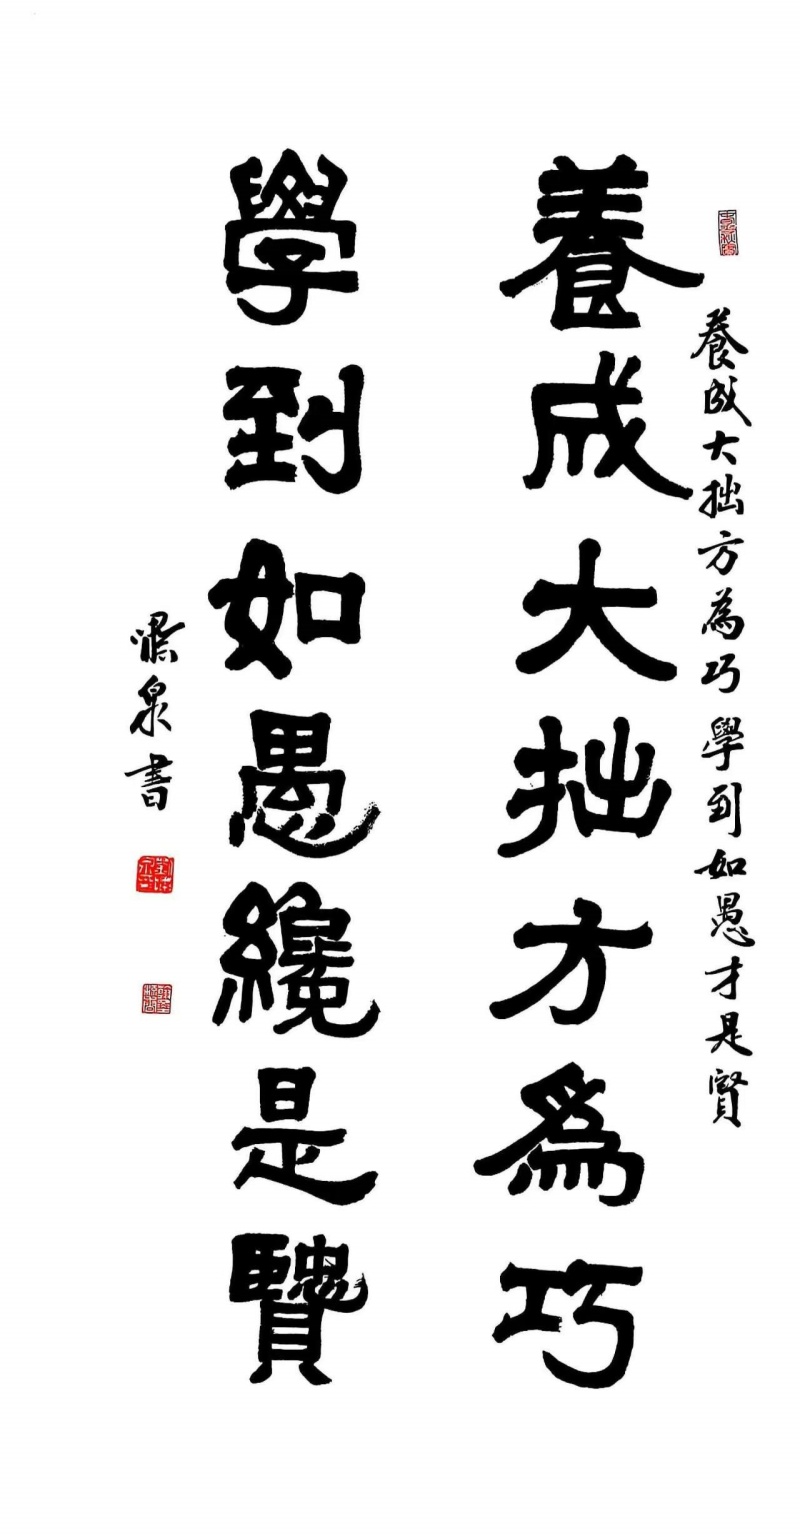 養成大拙方為巧 學到如愚才是賢
養成大拙方為巧
學到如愚纔是賢
泉書